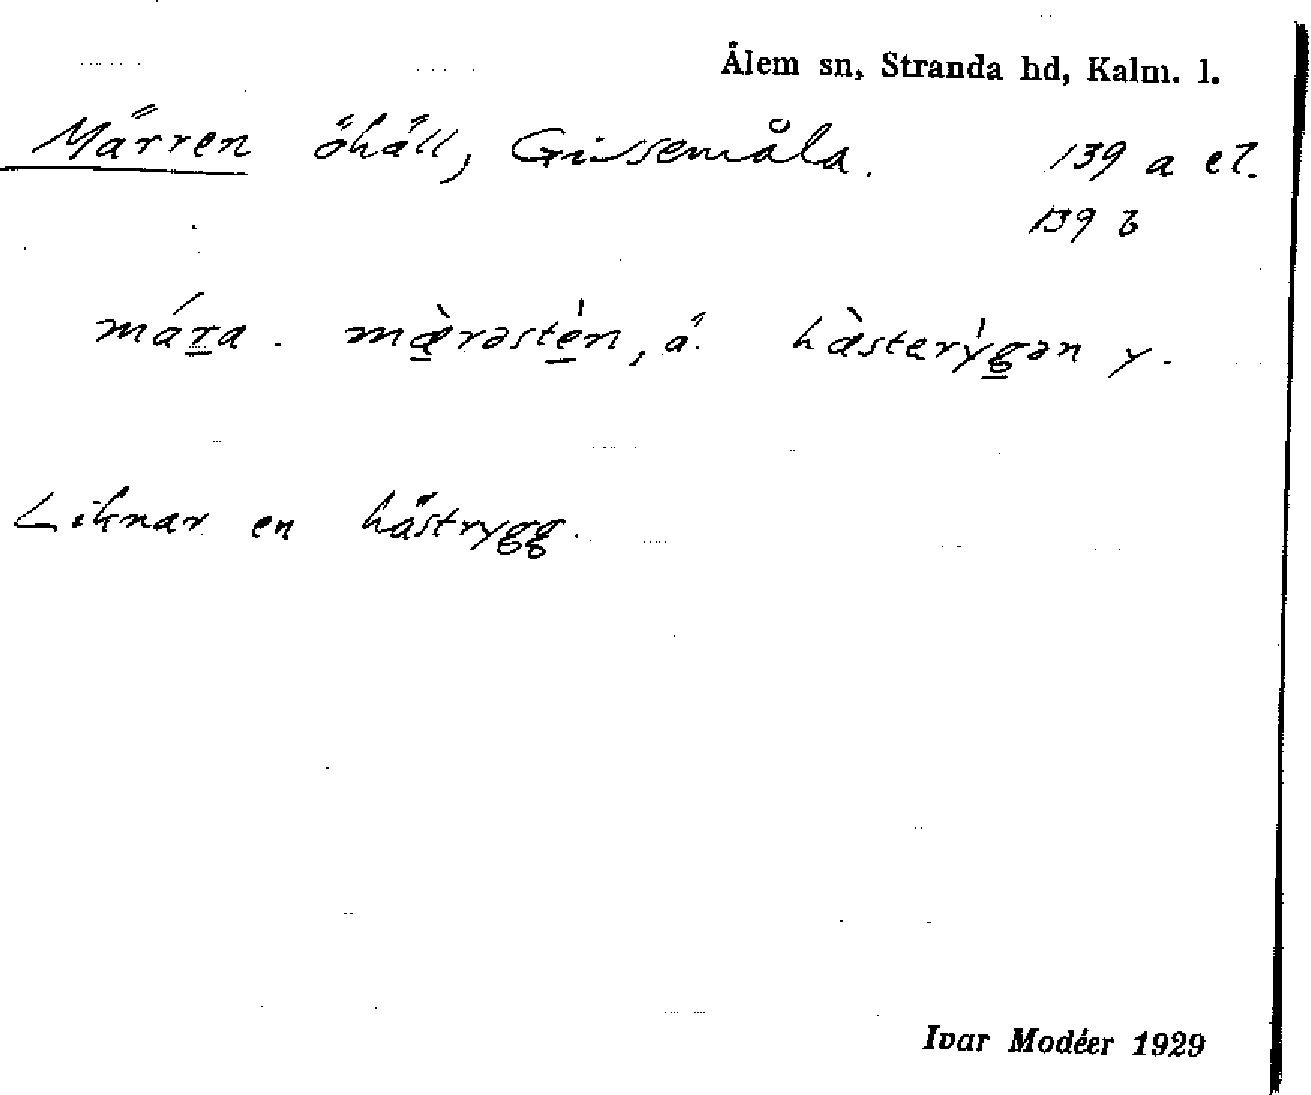 Ålem sn, Stranda hd, Kalm. l.
Märren öhäll, Gissemåla. 139 a el.
139 b
mára. mæ̀rəstén, ä. hàsterýgən y.
Liknar en hästrygg.
Ivar Modéer 1929